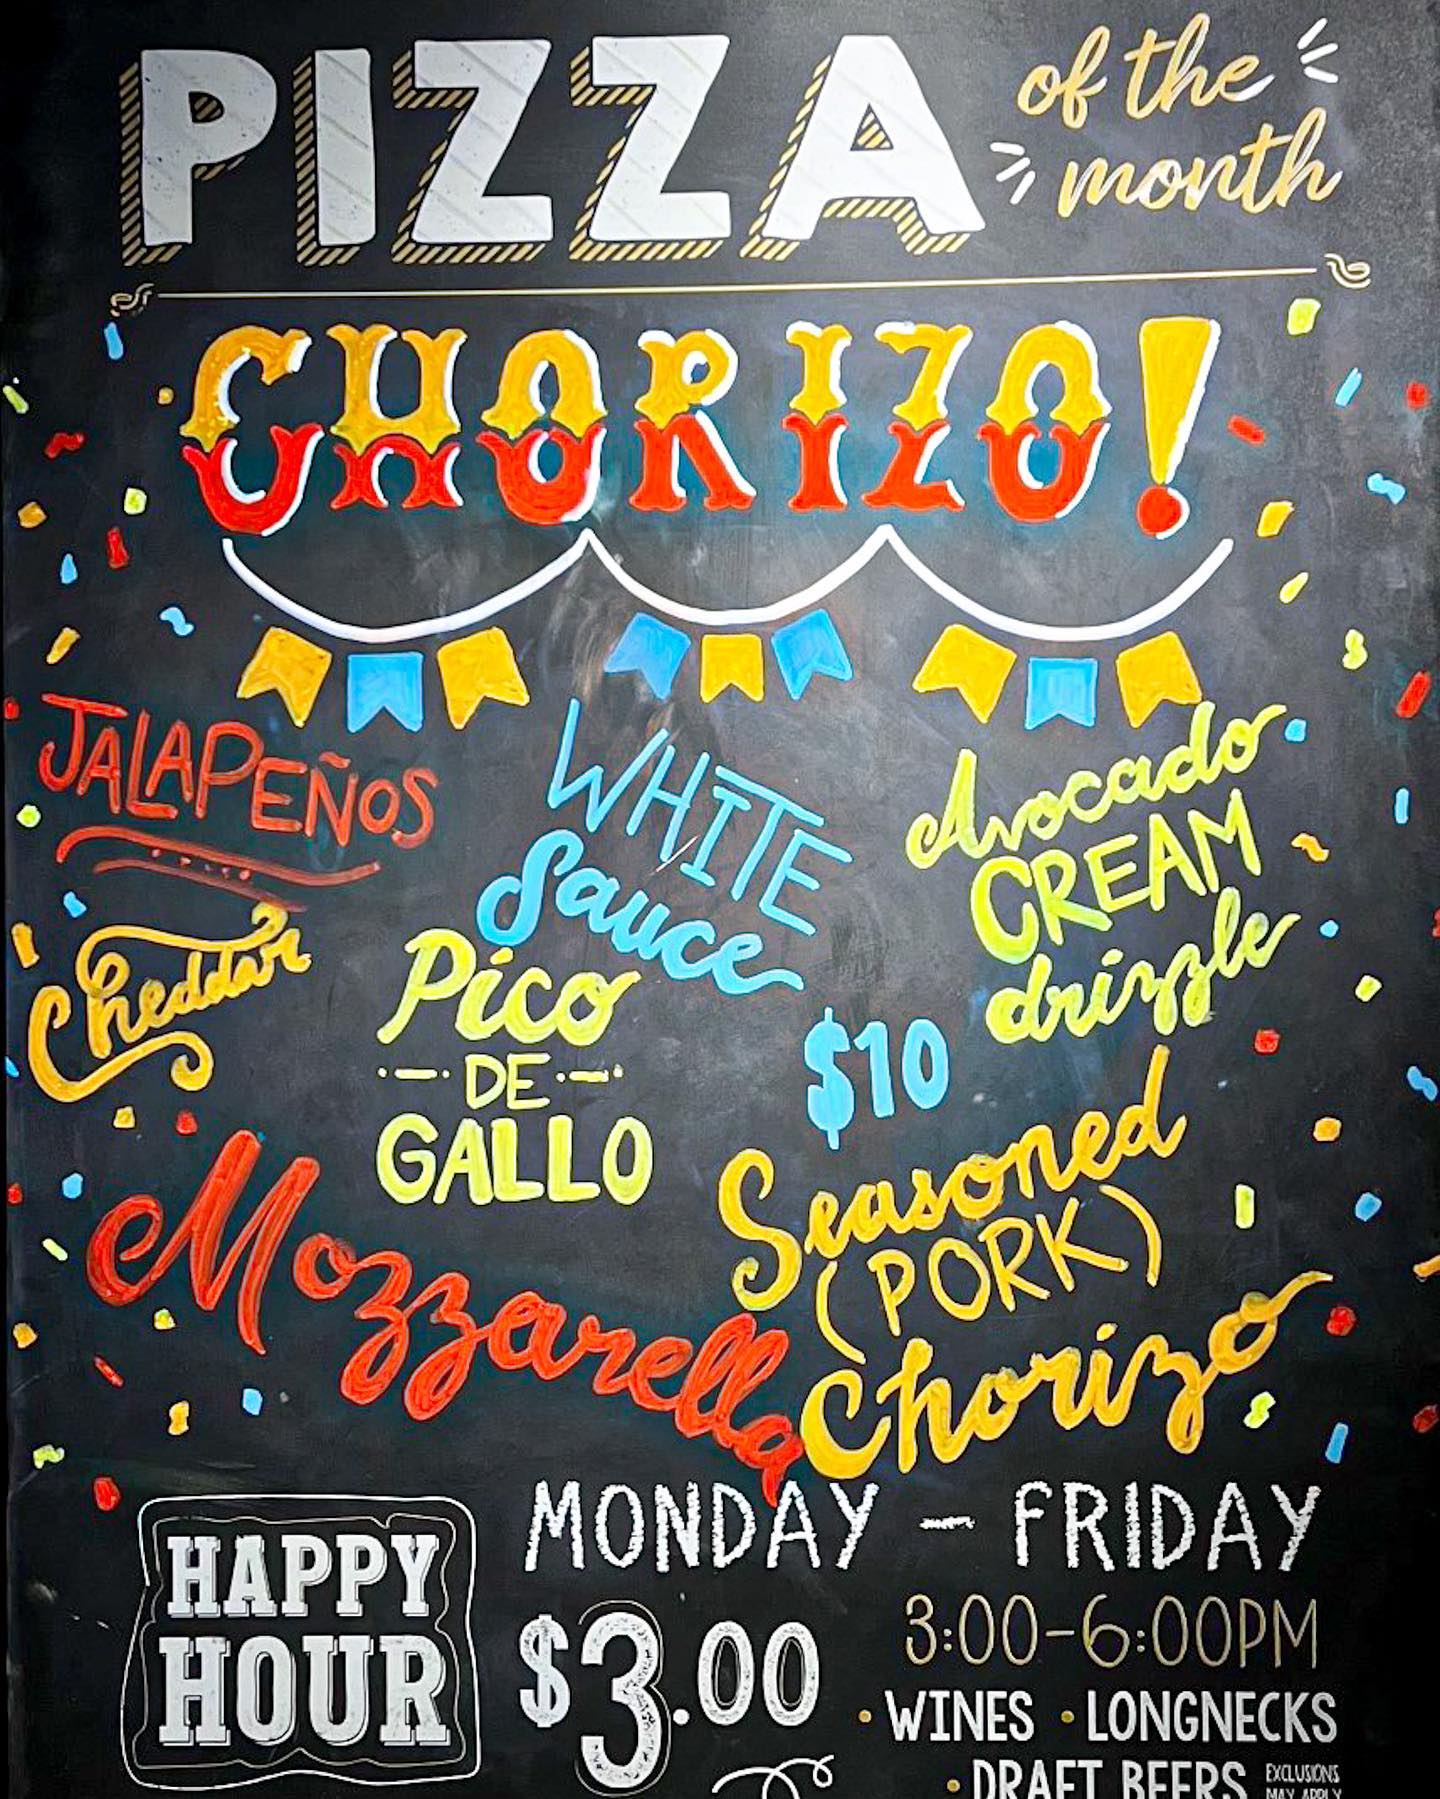 PIZZA of the month
CHORIZO!
JALAPEÑOS
WHITE
Sauce
Avocado
CREAM
drizzle
Cheddar
Pico
DE
GALLO
$10
Mozzarella
Seasoned
(PORK)
Chorizo
HAPPY
HOUR
MONDAY - FRIDAY
$3.00
3:00-6:00PM
• WINES • LONGNECKS
• DRAFT BEERS EXCLUSIONS
MAY APPLY